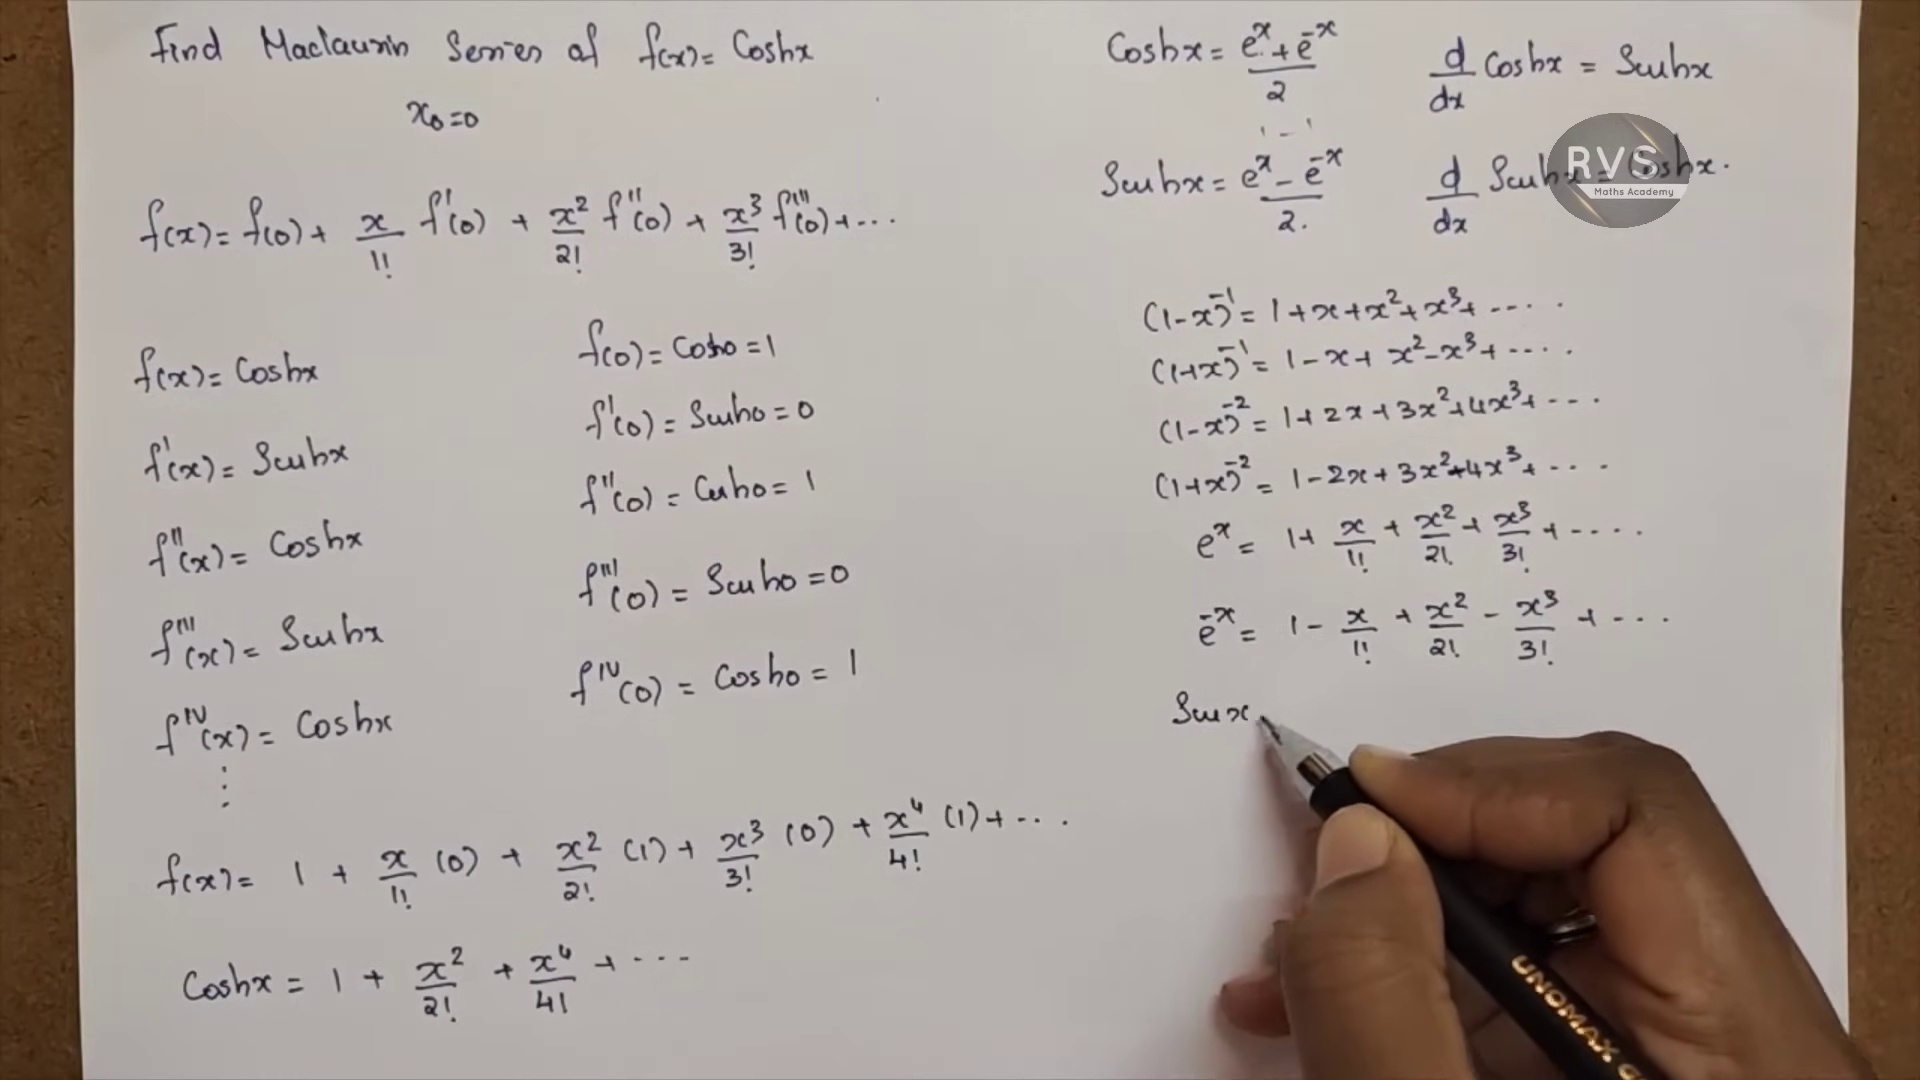 Find Maclaurin Series of f(x) = Coshx
x₀=0
f(x) = f(0) + x/1! f'(0) + x²/2! f''(0) + x³/3! f'''(0) + ...
f(x) = Coshx
f'(x) = Sinhx
f''(x) = Coshx
f'''(x) = Sinhx
f^IV(x) = Coshx
⋮
f(0) = Cosh0 = 1
f'(0) = Sinh0 = 0
f''(0) = Cosh0 = 1
f'''(0) = Sinh0 = 0
f^IV(0) = Cosh0 = 1
f(x) = 1 + x/1! (0) + x²/2! (1) + x³/3! (0) + x⁴/4! (1) + ...
Coshx = 1 + x²/2! + x⁴/4! + ...
Coshx = (e^x + e^-x)/2
d/dx Coshx = Sinhx
Sinhx = (e^x - e^-x)/2.
d/dx Sinhx = Coshx.
RVS
Maths Academy
(1-x)^-1 = 1+x+x²+x³+ .....
(1+x)^-1 = 1-x+x²-x³+ .....
(1-x)^-2 = 1+2x+3x²+4x³+ ...
(1+x)^-2 = 1-2x+3x²-4x³+ ....
e^x = 1 + x/1! + x²/2! + x³/3! + .....
e^-x = 1 - x/1! + x²/2! - x³/3! + ....
Sin x
UNOMAX